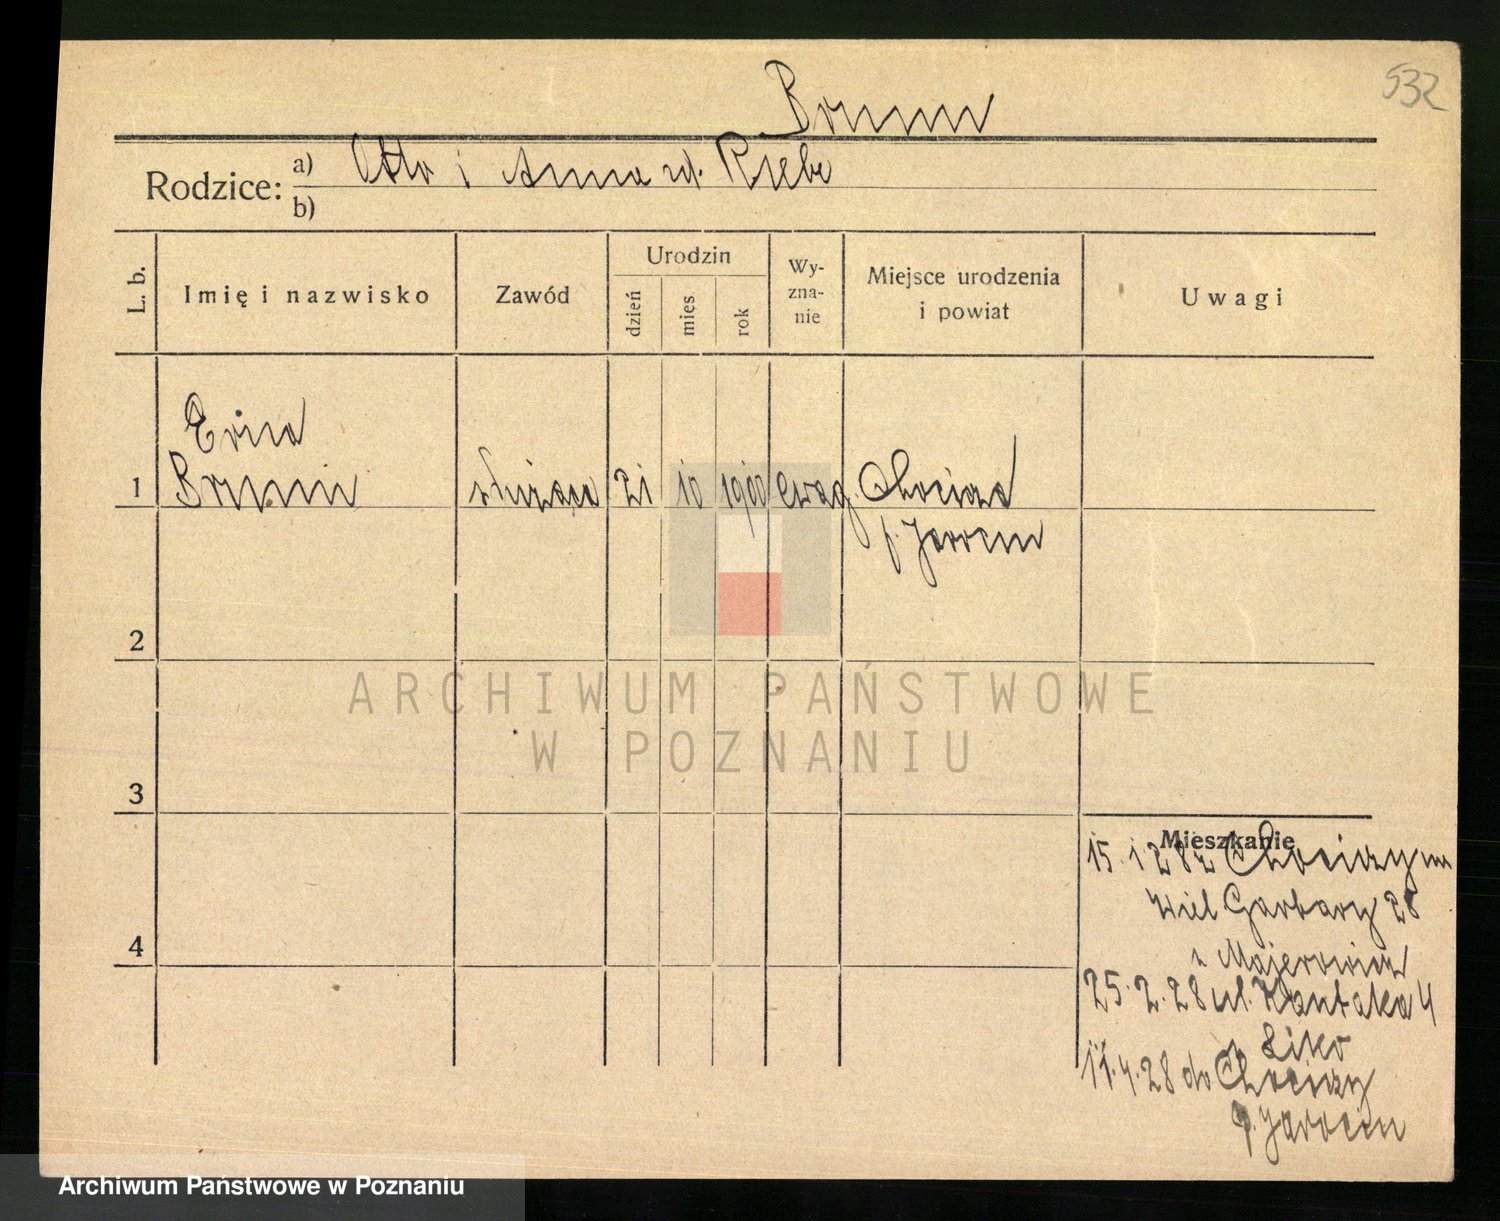 532
Brunn
Rodzice: a) Otto i Anna zd. Riebe
b)
L. b.
Imię i nazwisko
Zawód
Urodzin
dzień
mies
rok
Wy-
zna-
nie
Miejsce urodzenia
i powiat
Uwagi
Erna
1 Brunn służąca 21 10 1900 ewag. Chocicza
p. Jarocin
2
3
4
Mieszkanie
15. 1 28 z Chociczy na
Wiel Garbary 28
u Majerowicz
25. 2. 28 ul. Kantaka 4
u
11. 4. 28 do Chociczy
p. Jarocin
ARCHIWUM PAŃSTWOWE
W POZNANIU
Archiwum Państwowe w Poznaniu